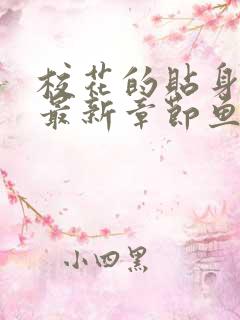 校花的贴身
最新章节鱼
小四黑